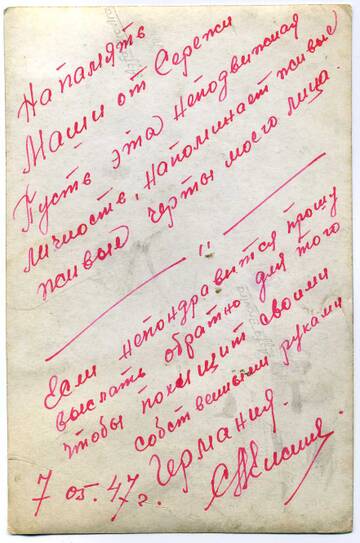 На память
Маши от Сережи
Пусть эта неподвижная
личность, напоминает живые
живые черты моего лица.
"
Если непондравится прошу
выслать обратно для того
чтобы похищит своими
собственными руками
Германия.
7 05. 47 г.